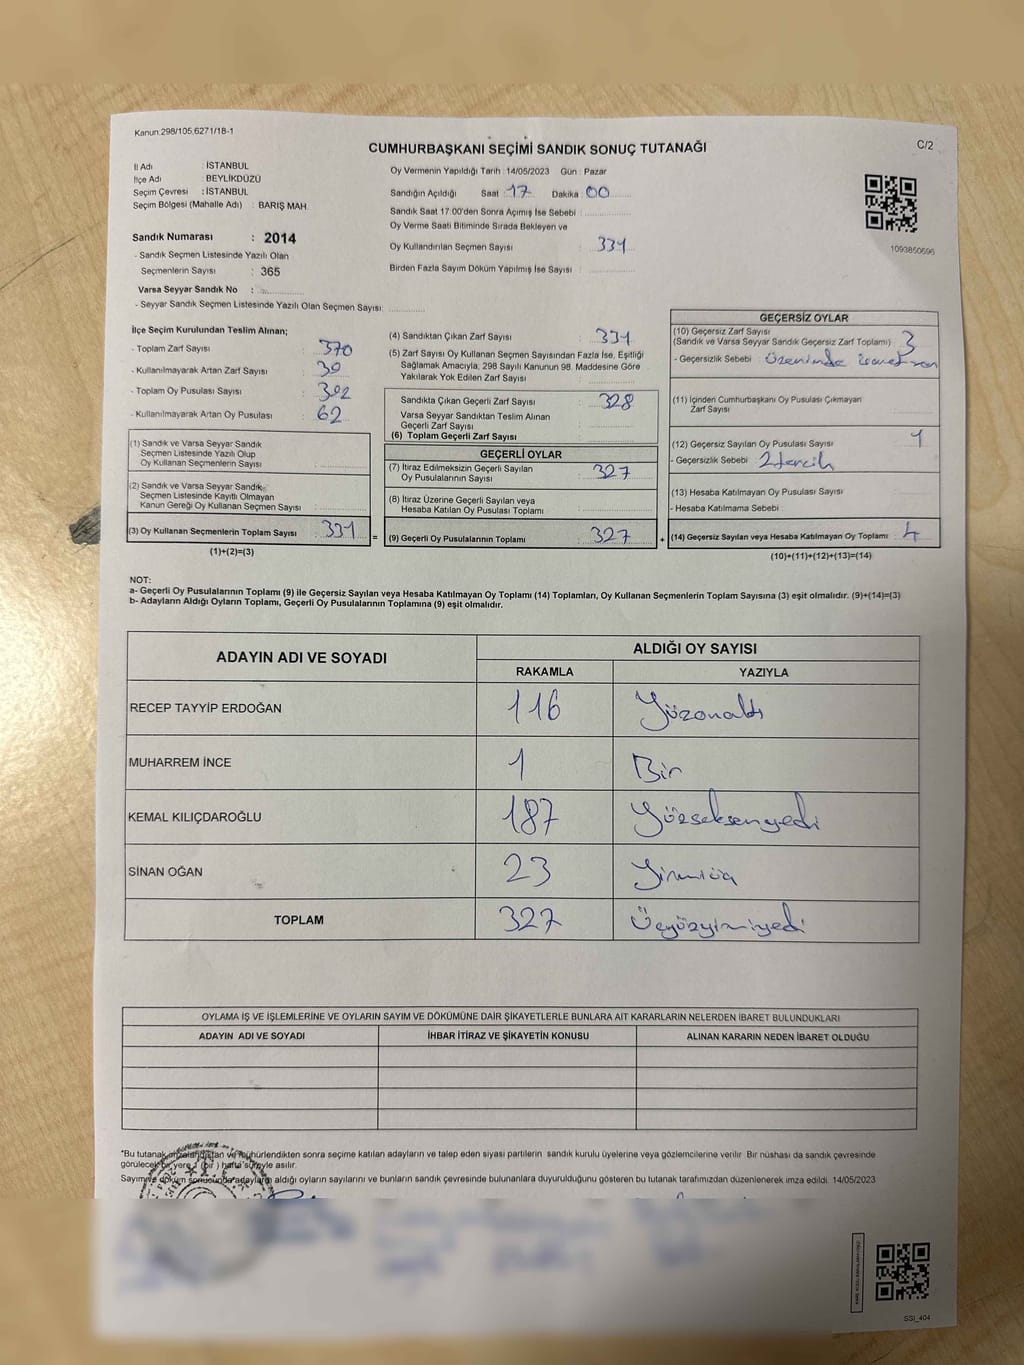 Kanun:298/105,6271/18-1
CUMHURBAŞKANI SEÇİMİ SANDIK SONUÇ TUTANAĞI
C/2
İl Adı : İSTANBUL
İlçe Adı : BEYLİKDÜZÜ
Seçim Çevresi : İSTANBUL
Seçim Bölgesi (Mahalle Adı) : BARIŞ MAH.
Sandık Numarası : 2014
- Sandık Seçmen Listesinde Yazılı Olan
Seçmenlerin Sayısı : 365
Varsa Seyyar Sandık No :
- Seyyar Sandık Seçmen Listesinde Yazılı Olan Seçmen Sayısı:
Oy Vermenin Yapıldığı Tarih :14/05/2023 Gün : Pazar
Sandığın Açıldığı Saat :17 Dakika :00
Sandık Saat 17:00'den Sonra Açımış İse Sebebi :
Oy Verme Saati Bitiminde Sırada Bekleyen ve
Oy Kullandırılan Seçmen Sayısı : 331
Birden Fazla Sayım Döküm Yapılmış İse Sayısı :
1093850696
İlçe Seçim Kurulundan Teslim Alınan;
- Toplam Zarf Sayısı : 370
- Kullanılmayarak Artan Zarf Sayısı : 39
- Toplam Oy Pusulası Sayısı : 392
- Kullanılmayarak Artan Oy Pusulası : 62
(1) Sandık ve Varsa Seyyar Sandık
Seçmen Listesinde Yazılı Olup
Oy Kullanan Seçmenlerin Sayısı :
(2) Sandık ve Varsa Seyyar Sandık
Seçmen Listesinde Kayıtlı Olmayan
Kanun Gereği Oy Kullanan Seçmen Sayısı :
(3) Oy Kullanan Seçmenlerin Toplam Sayısı : 331 =
(1)+(2)=(3)
(4) Sandıktan Çıkan Zarf Sayısı : 331
(5) Zarf Sayısı Oy Kullanan Seçmen Sayısından Fazla İse, Eşitliği
Sağlamak Amacıyla, 298 Sayılı Kanunun 98. Maddesine Göre
Yakılarak Yok Edilen Zarf Sayısı :
Sandıkta Çıkan Geçerli Zarf Sayısı : 328
Varsa Seyyar Sandıktan Teslim Alınan
Geçerli Zarf Sayısı :
(6) Toplam Geçerli Zarf Sayısı :
GEÇERLİ OYLAR
(7) İtiraz Edilmeksizin Geçerli Sayılan
Oy Pusulalarının Sayısı : 327
(8) İtiraz Üzerine Geçerli Sayılan veya
Hesaba Katılan Oy Pusulası Toplamı :
(9) Geçerli Oy Pusulalarının Toplamı : 327 +
GEÇERSİZ OYLAR
(10) Geçersiz Zarf Sayısı
(Sandık ve Varsa Seyyar Sandık Geçersiz Zarf Toplamı) : 3
- Geçersizlik Sebebi : Üzerinde
(11) İçinden Cumhurbaşkanı Oy Pusulası Çıkmayan
Zarf Sayısı :
(12) Geçersiz Sayılan Oy Pusulası Sayısı : 1
- Geçersizlik Sebebi : 2 tercih
(13) Hesaba Katılmayan Oy Pusulası Sayısı :
- Hesaba Katılmama Sebebi :
(14) Geçersiz Sayılan veya Hesaba Katılmayan Oy Toplamı : 4
(10)+(11)+(12)+(13)=(14)
NOT:
a- Geçerli Oy Pusulalarının Toplamı (9) ile Geçersiz Sayılan veya Hesaba Katılmayan Oy Toplamı (14) Toplamları, Oy Kullanan Seçmenlerin Toplam Sayısına (3) eşit olmalıdır. (9)+(14)=(3)
b- Adayların Aldığı Oyların Toplamı, Geçerli Oy Pusulalarının Toplamına (9) eşit olmalıdır.
ADAYIN ADI VE SOYADI
ALDIĞI OY SAYISI
RAKAMLA YAZIYLA
RECEP TAYYİP ERDOĞAN 116 Yüzonaltı
MUHARREM İNCE 1 Bir
KEMAL KILIÇDAROĞLU 187 Yüzseksenyedi
SİNAN OĞAN 23 Yirmiüç
TOPLAM 327 Üçyüzyirmiyedi
OYLAMA İŞ VE İŞLEMLERİNE VE OYLARIN SAYIM VE DÖKÜMÜNE DAİR ŞİKAYETLERLE BUNLARA AİT KARARLARIN NELERDEN İBARET BULUNDUKLARI
ADAYIN ADI VE SOYADI İHBAR İTİRAZ VE ŞİKAYETİN KONUSU ALINAN KARARIN NEDEN İBARET OLDUĞU
*Bu tutanak imzalandıktan ve mühürlendikten sonra seçime katılan adayların ve talep eden siyasi partilerin sandık kurulu üyelerine veya gözlemcilerine verilir. Bir nüshası da sandık çevresinde
görülecek bir yere 1 (bir) hafta süreyle asılır.
Sayım ve döküm sonucunda adayların aldığı oyların sayılarını ve bunların sandık çevresinde bulunanlara duyurulduğunu gösteren bu tutanak tarafımızdan düzenlenerek imza edildi. 14/05/2023
SSI_404